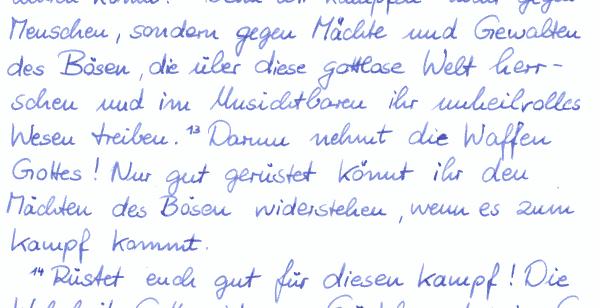 Menschen, sondern gegen Mächte und Gewalten
des Bösen, die über diese gottlose Welt herr-
schen und im Unsichtbaren ihr unheilvolles
Wesen treiben. ¹³ Darum nehmt die Waffen
Gottes! Nur gut gerüstet könnt ihr den
Mächten des Bösen widerstehen, wenn es zum
Kampf kommt.
¹⁴ Rüstet euch gut für diesen Kampf! Die